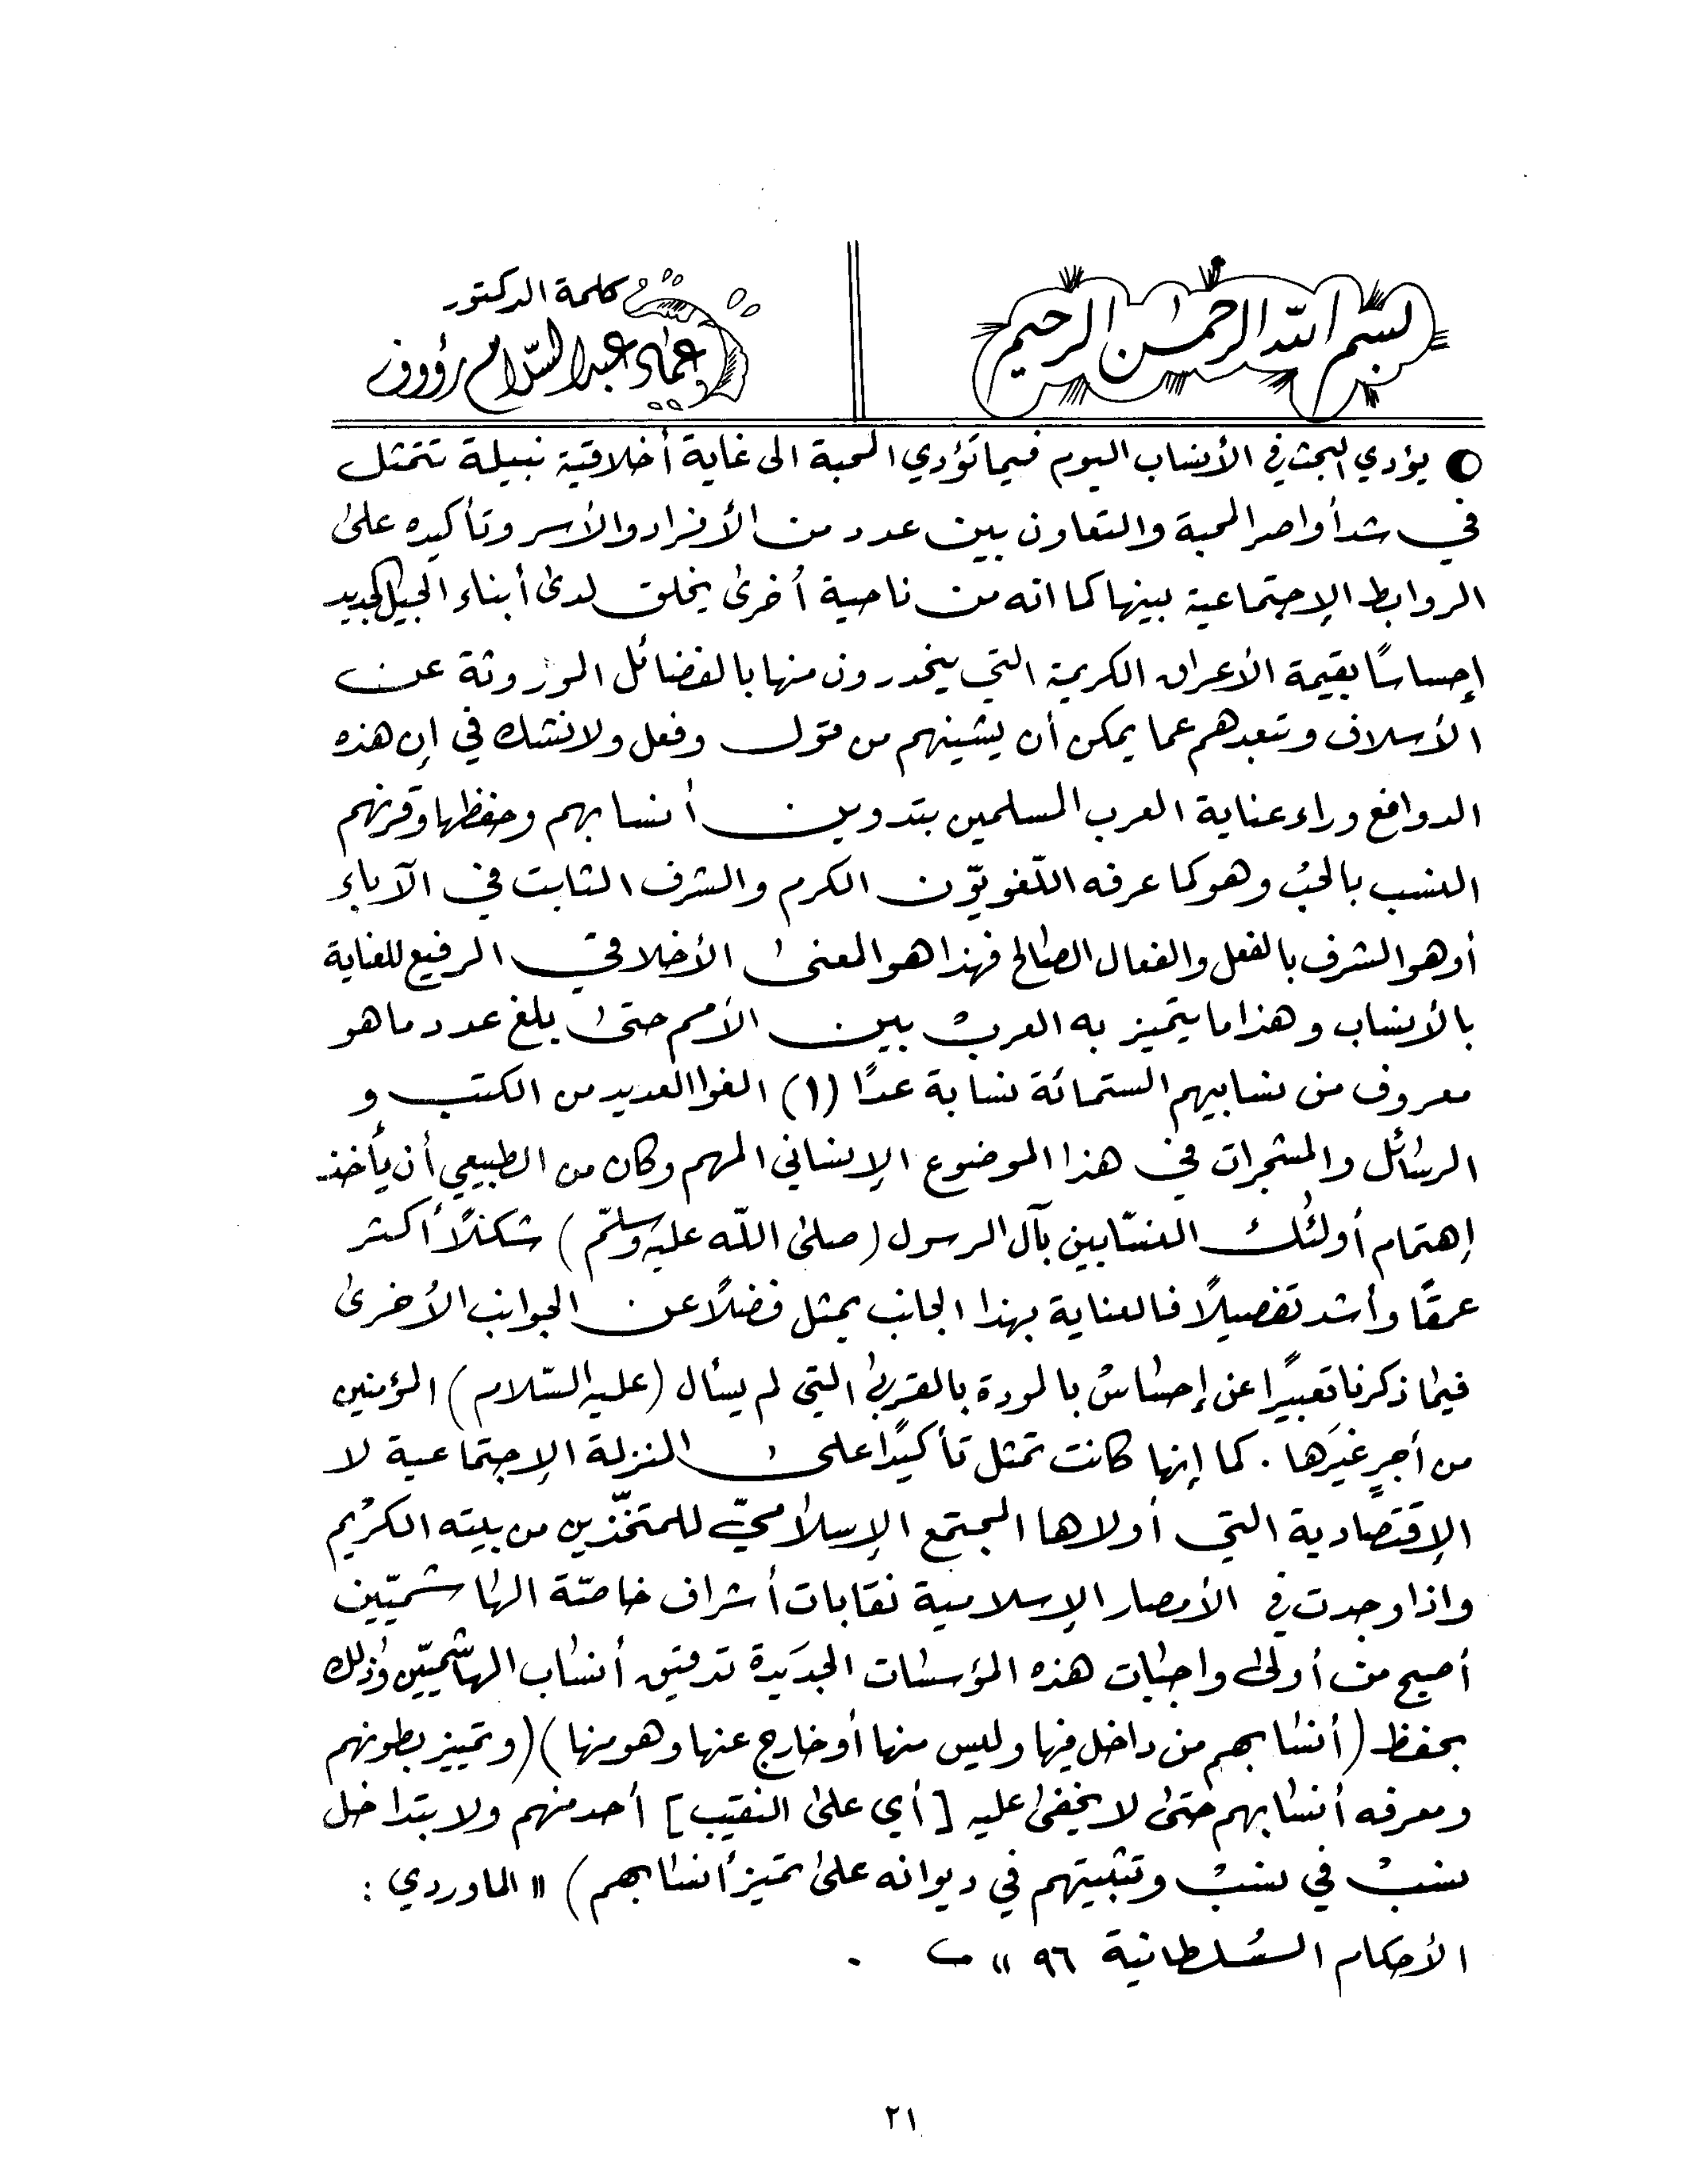 بسم الله الرحمٰن الرحيم
كلمة الدكتور
عماد عبد السّلام رؤوف
يؤدي البحث في الأنساب اليوم فيما تؤدي المحبة الى غاية أخلاقية نبيلة تتمثل
في شد أواصر المحبة والتعاون بين عدد من الأفراد والأسر وتأكيده على
الروابط الإجتماعية بينها كما انه من ناحية أخرى يخلق لدى أبناء الجيل الجديد
إحساسًا بقيمة الأعراق الكريمة التي ينحدرون منها بالفضائل الموروثة عن
الأسلاف وتبعدهم عما يمكن أن يشينهم من قول وفعل ولا نشك في إن هذه
الدوافع وراء عناية العرب المسلمين بتدوين أنسابهم وحفظها وقرنهم
النسب بالحسب وهو كما عرفه اللّغويّون الكرم والشرف الثابت في الآباء
أو هو الشرف بالفعل والفعال الصالح فهذا هو المعنى الأخلاقي الرفيع للغاية
بالأنساب وهذا ما يتميز به العرب بين الأمم حتى بلغ عدد ما هو
معروف من نسابيهم الستمائة نسابة عدًا (١) الفوا العديد من الكتب و
الرسائل والمشجرات في هذا الموضوع الإنساني المهم وكان من الطبيعي أن يأخذ
إهتمام أولئك النسّابين بآل الرسول (صلى اللّه عليه وسلّم) شكلًا أكثر
عمقًا وأشد تفصيلًا فالعناية بهذا الجانب يمثل فضلًا عن الجوانب الأخرى
فيما ذكرنا تعبيرًا عن إحساس بالمودة بالقربى التي لم يسأل (عليه السّلام) المؤمنين
من أجرٍ غيرَها . كما إنها كانت تمثل تأكيدًا على المنزلة الإجتماعية لا
الإقتصادية التي أولاها المجتمع الإسلاميّ للمتخّذين من بيته الكريم
واذا وجدت في الأمصار الإسلامية نقابات أشراف خاصّة الهاشميّين
أصبح من أولى واجبات هذه المؤسسات الجديدة تدقيق أنساب الهاشميّين وذلك
بحفظ (أنسابهم من داخل فيها وليس منها أو خارج عنها وهو منها) (وتمييز بطونهم
ومعرفه أنسابهم حتى لا يخفى عليه [أي على النقيب] أحد منهم ولا يتداخل
نسب في نسب وتثبيتهم في ديوانه على تميز أنسابهم) " الماوردي :
الأحكام السُلطانية ٩٦ " .
٢١